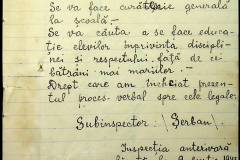 Se va face curățenie generală
la școală.-
Se va căuta a se face educa-
ție elevilor înprivința discipli-
nei și respectului față de cei
bătrâni mai mariilor.-
Drept care am încheiat prezen-
tul proces verbal spre cele legale.
Subinspector: /Șerban/.
Inspecția anterioară